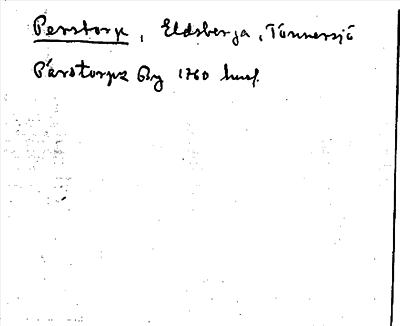 Perstorp, Eldsberga, Tönnersjö
Pärstorps By 1760 husf.